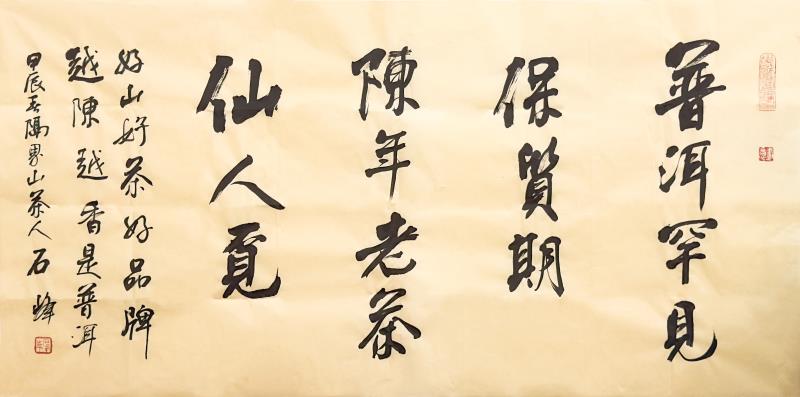 普洱罕見
保質期
陳年老茶
仙人覓
好山好茶好品牌
越陳越香是普洱
甲辰 隔界山茶人石峰